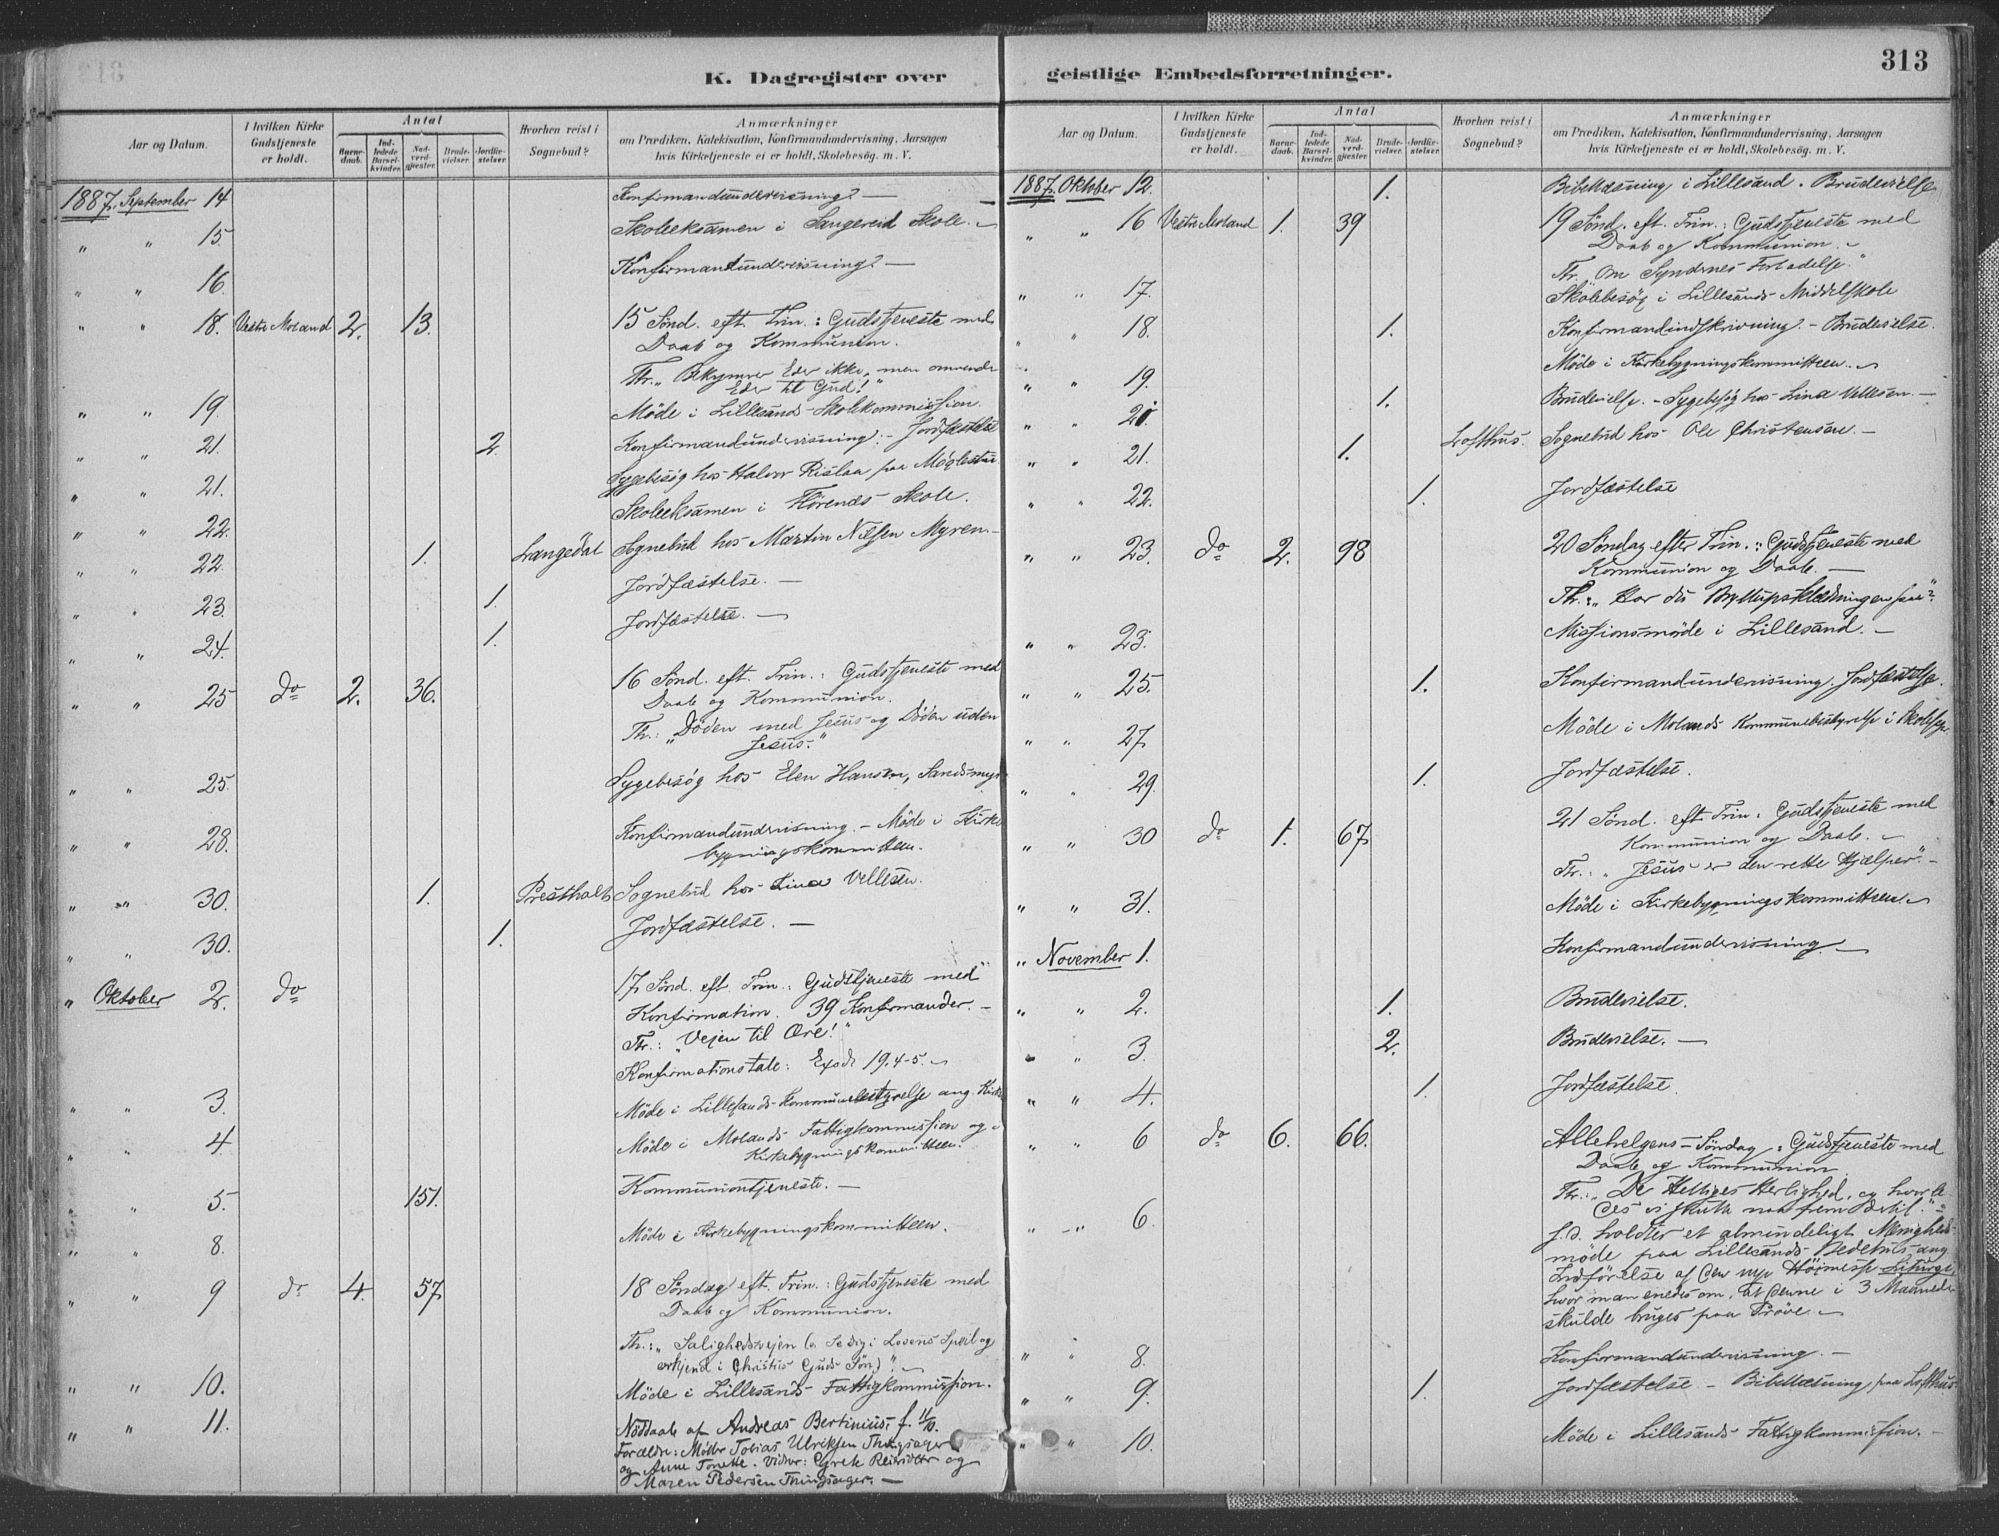 313
K. Dagregister over geistlige Embedsforretninger.
Aar og Datum.
I hvilken Kirke Gudstjeneste er holdt.
Antal
Barne-daab.
Ind-ledede Barsel-kvinder.
Nad-verd-gjester
Brude-vielser.
Jordfæ-stelser.
Hvorhen reist i Sognebud?
Anmærkninger
om Prædiken, Katekisation, Konfirmandundervisning, Aarsagen
hvis Kirketjeneste ei er holdt, Skolebesøg. m. V.
1887. September 14 Konfirmandundervisning. —
" " 15. Skoleeksamen i Sangereid Skole. —
" " 16. Konfirmandundervisning. —
" " 18. Vestre Moland 2. 13. 15 Sønd. eft. Trin.: Gudstjeneste med
Daab og Kommunion.
Th. "Bekymrer Eder ikke, men omvender
Eder til Gud!"
" " 19. Møde i Lillesands Skolekommission.
" " 21. 2. Konfirmandundervisning. – Jordfæstelse
" " 21. Sygebesøg hos Halvor Rislaa paa Møglestu
" " 22. Skoleeksamen i Skole.
" " 22. 1. Langedal Sognebud hos Martin Nilsen Myren. —
" " 23. 1. Jordfæstelse. —
" " 24. 1. Jordfæstelse. —
" " 25 do 2. 36. 16 Sønd. eft. Trin.: Gudstjeneste med
Daab og Kommunion.
Th.: "Døden med Jesus og Døden uden
Jesus."
" " 25. Sygebesøg hos Elen Hansen, Sandsmyr
" " 28. Konfirmandundervisning. – Møde i Kirke
bygningskommitteen.
" " 30. 1. Prestholt Sognebud hos Lina Vellesen.
" " 30. 1. Jordfæstelse. —
" Oktober 2. do 17. Sønd. eft. Trin.: Gudstjeneste med
Konfirmation. 39 Konfirmander. —
Th.: "Vejen til Ære!"
Konfirmationstale: Exod. 19. 4-5. —
" " 3. Møde i Lillesands Kommunebestyrelse ang. Kirke
" " 4 Møde i Molands Fattigkommission og i
Kirkebygningskommitteen.
" " 5. 151. Kommuniontjeneste. —
" " 8. Møde i Kirkebygningskommitteen.
" " 9 do 4. 57. 18 Søndag eft. Trin.: Gudstjeneste med
Daab og Kommunion.
Th.: "Salighedsvejen (a. Se dig i Lovens Speil og
erkjend i Christus Guds Søn)". —
" " 10. Møde i Lillesands Fattigkommission.
" " 11. Nøddaab af Andreas Bertinius, f. 11/10.
Forældre: Tobias Ulriksen Thingsager
og Anne Tonette. Vidner: Grete og
Maren Pedersen Thingsager. —
Aar og Datum.
I hvilken Kirke Gudstjeneste er holdt.
Antal
Barne-daab.
Ind-ledede Barsel-kvinder.
Nad-verd-gjester
Brude-vielser.
Jordfæ-stelser.
Hvorhen reist i Sognebud?
Anmærkninger
om Prædiken, Katekisation, Konfirmandundervisning, Aarsagen
hvis Kirketjeneste ei er holdt, Skolebesøg. m. V.
1887. Oktober 12. 1. Bibellæsning i Lillesand. Brudevielse
" " 16 Vestre Moland 1. 39 19 Sønd. eft. Trin.: Gudstjeneste med
Daab og Kommunion. —
Th. "Om Syndernes Forladelse."
" " 17. Skolebesøg i Lillesands Middelskole
" " 18. 1. Konfirmandindskrivning. – Brudevielse.
" " 19. Møde i Kirkebygningskommitteen. —
" " 20. 1. Brudevielse. – Sygebesøg hos Lina Vellesen. —
" " 21. 1. Lofthus. Sognebud hos Ole Christensen. —
" " 22. 1. Jordfæstelse
" " 23. do 2. 98 20 Søndag efter Trin.: Gudstjeneste med
Kommunion og Daab. —
Th.: "Har du Bryllupsklædningen paa"?
" " 23. Missionsmøde i Lillesand. —
" " 25. 1. Konfirmandundervisning. Jordfæstelse.
" " 27. Møde i Molands Kommunebestyrelse i
" " 29. 1. Jordfæstelse.
" " 30 do 1. 67. 21 Sønd. eft. Trin: Gudstjeneste med
Kommunion og Daab. —
Th.: "Jesus er den rette Hjælper". —
" " 31. Møde i Kirkebygningskommitteen —
" November 1. Konfirmandundervisning —
" " 2. 1. Brudevielse.
" " 3. 2. Brudevielse. —
" " 4. 1. Jordfæstelse.
" " 6 do 6. 66. Allehelgens-Søndag: Gudstjeneste med
Daab og Kommunion
Th.: "De Helliges Herlighed, og hvorle
des vi skulle naa frem dertil." —
" " 6. s.D. holdtes et almindeligt Menigheds
møde paa Lillesands Bedehus ang.
Indførelse af den nye Høimesse Liturgi,
hvor man enedes om, at denne i 3 Maaneder
skulde bruges paa Prøve. —
" " 8. Konfirmandundervisning. —
" " 9. 1. Jordfæstelse. – Bibellæsning paa Lofthus
" " 10. Møde i Lillesands Fattigkommission. —